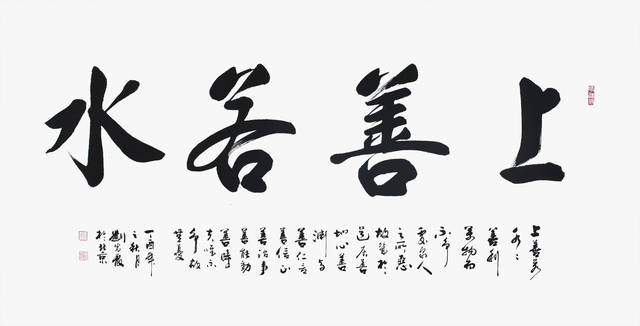 上善若水
上善若
水〻
善利
萬物而
不爭
處眾人
之所惡
故幾於
道居善
地心善
渊与
善仁言
善信正
善治事
善能動
善時
夫唯不
爭故
無
丁酉年
之秋月
於北京